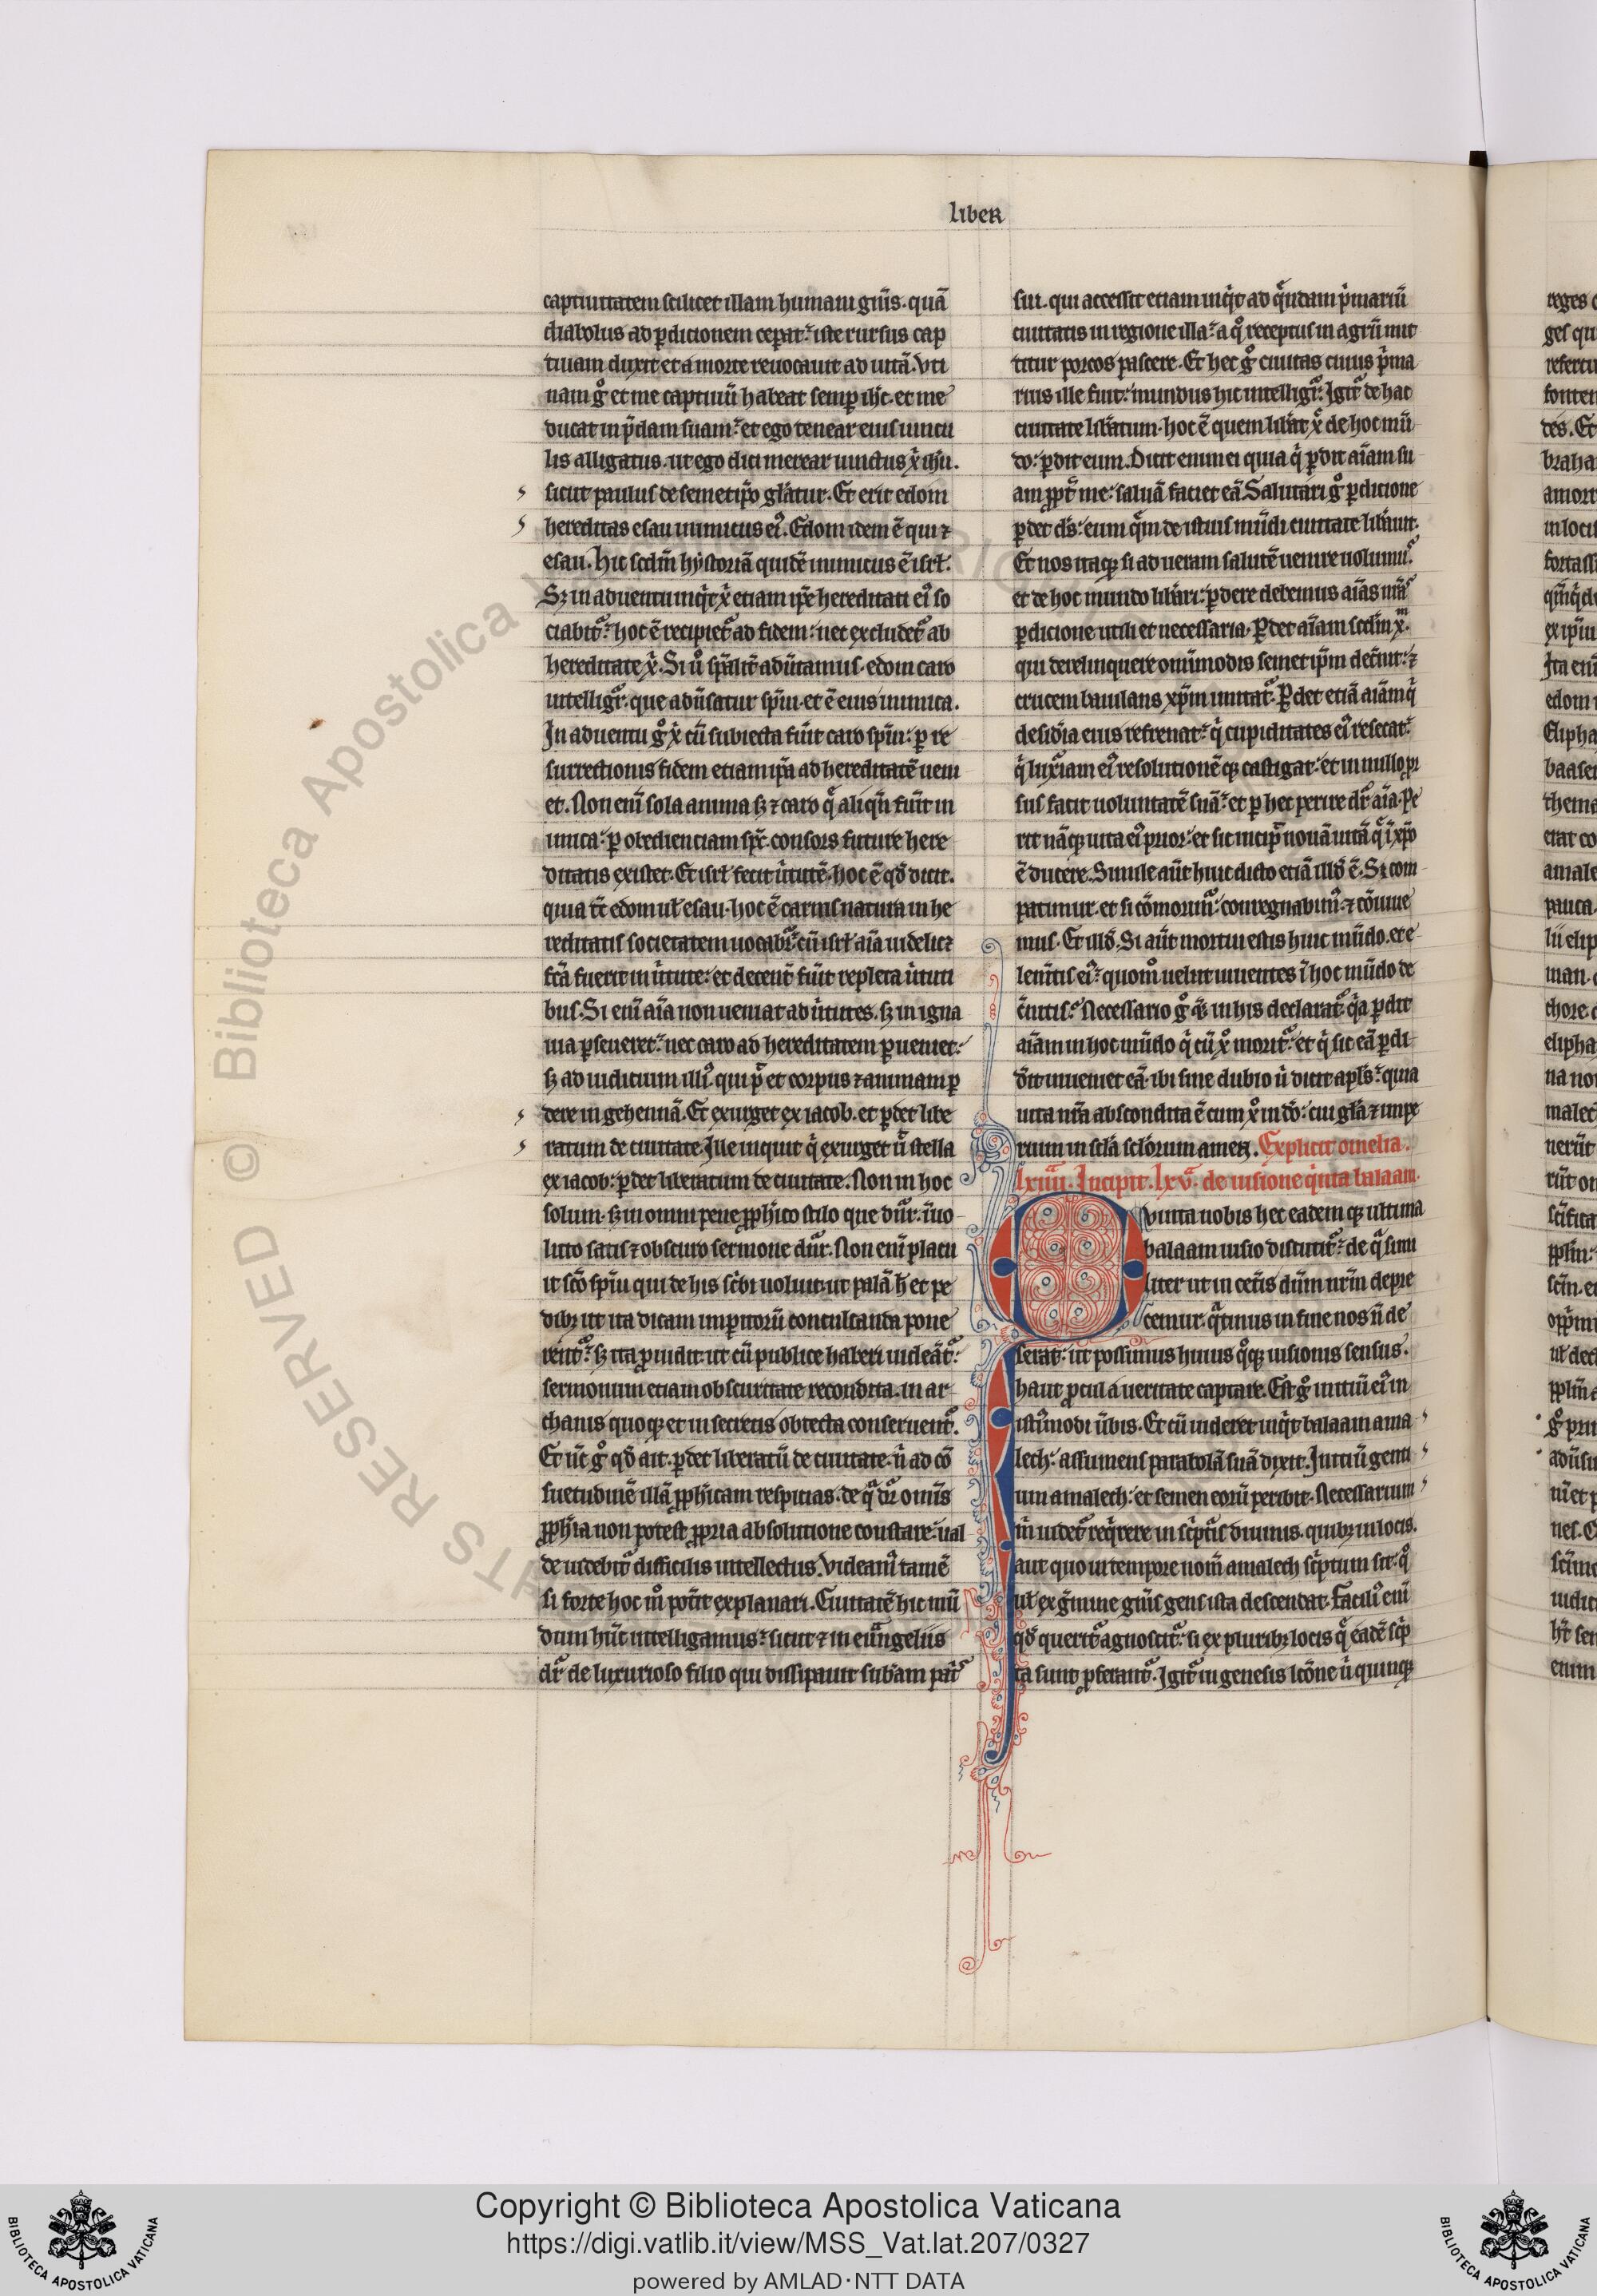 liber
captiuitatem scilicet illam humani gn̄is. quā
diabolus ad ꝑditionem ceperat: iste rursus cap
tiuam duxit et a morte reuocauit ad uitā. vti
nam gͦ et me captiuū habeat semꝑ ih̄c. et me
ducat in p̄dam suam: et ego tenear eius uincu
lis alligatus. ut ego dici merear uinctus xp̄i ih̄u.
sicut paulus de semetip̄o gl̄atur. Et erit edom
hereditas esau inimicus eiꝰ. Edom idem ē qui ⁊
esau. Hic scd̄m hystoriā quidē inimicus ē isrl̄.
Sꝫ in aduentu inq̇t xp̄i etiam ip̄e hereditati eiꝰ so
ciabit᷑: hoc ē recipiet᷑ ad fidem: nec excludet᷑ ab
hereditate xp̄i. Si ū sp̄alit̄ aduertamus. edom caro
intelligit᷑. que adūsatur sp̄ui. et ē eius inimica.
In aduentu gͦ xp̄i cū subiecta fūit caro sp̄ui: ꝑ re
surrectionis fidem etiam ip̄a ad hereditatē ueni
et. Non enī sola anima sꝫ ⁊ caro q̄ aliqn̄ fuit in
imica: ꝑ obedienciam sp̄c. consors future here
ditatis existet. Et isrl̄ fecit ūtutē. hoc ē qd̄ dicit.
quia cū edom ul̄ esau. hoc ē carnis natura in he
reditatis societatem uocabit᷑: cū isrl̄ aīa uidelicꝫ
fc̄a fuerit in ūtute: et decent̄ fūit repleta ūtuti
bus. Si enī aīa non ueniat ad ūtutes. sꝫ in igna
uia ꝑseueret: nec caro ad hereditatem ꝑueniet:
sꝫ ad iudicium illiꝰ. qui pōt et corpus ⁊ animam ꝑ
dere in gehennā. Et exurget ex iacob. et ꝑdet libe
ratum de ciuitate. Ille inquit q̇ exurget ū stella
ex iacob: ꝑdet liberatum de ciuitate. Non in hoc
solum. sꝫ in omni pene ꝓph̄ico stilo que dn̄r. inuo
luto satis ⁊ obscuro sermone dn̄r. Non enī placu
it sc̄o sp̄ui qui de his sc̄bi uoluit. ut palā h̄ et pe
dibꝫ ut ita dicam imꝑitorū conculcanda pone
rent᷑: sꝫ ita ꝓuidit. ut cū publice haberi uideāt᷑:
sermonum etiam obscuritate recondita. in ar
chanis quoqꝫ et in secretis obtecta conseruent᷑.
Et ūc gͦ qd̄ ait. ꝑdet liberatū de ciuitate. n̄ ad cō
suetudinē illā ꝓph̄icam respicias. de q̄ dr̄ omīs
ꝓph̄ia non potest ꝓpria absolutione constare: ual
de uidebit᷑ difficilis intellectus. Videamꝰ tamē
si forte hoc mͦ potit explanari. Ciuitatē hic mū
dum hūc intelligamus: sicut ⁊ in euāngeliis
dr̄ de luxurioso filio qui dissipauit sub̄am pat᷑s
sui. qui accessit etiam inq̇t ad q̄ndam p̄mariū
ciuitatis in regione illa: a qͦ receptus in agrū mit
titur porcos pascere. Et hec gͦ ciuitas cuius p̄ma
rius ille fuit: mundus hic intelligit᷑. Igit᷑ de hac
ciuitate lib̄atum. hoc ē quem lib̄at xp̄c de hoc mū
do: ꝑdit eum. Dicit enim ei quia q̇ ꝑdit aīam su
am ꝓpt̄ me: saluā faciet eā. Salutari gͦ ꝑditione
ꝑdet dn̄s: eum q̄m de istius mūdi ciuitate lib̄auit.
Et nos itaqꝫ si ad ueram salutē uenire uolumꝰ
et de hoc mundo lib̄ari: ꝑdere debemus aīas nr̄as
ꝑdicione utili et necessaria. Perdet aīam scd̄m xp̄m.
qui derelinquere omīmodis semetip̄m decn̄it: ⁊
crucem baiulans xp̄m imitat᷑. Perdet etiā aīam q̇
desidia eius refrenat: q̇ cupiditates eiꝰ resecat:
q̇ luxiam eiꝰ resolutionēqꝫ castigat: et in nullo pr
sus facit uoluntatē suā: et ꝑ hec perire dr̄ aīa. Pe
rit nāqꝫ uita eiꝰ prior: et sic incipit nouā uitā q̄ ī xp̄o
ē ducere. Simile aūt huic dicto etiā illd̄ ē. Si com
patimur. et si cōmorimꝰ: conregnabimꝰ. ⁊ cōuiue
mus. Et illd̄. Si aūt mortui estis huic mūdo. ere
lementis eiꝰ: quomͦ uelut uiuentes ī hoc mūdo de
cn̄itis? Necessario gͦ in his declarat᷑. q̇a ꝑdit
aīam in hoc mūdo q̇ cū xp̄o morit᷑: et q̇ sic eā ꝑdi
d̄it inueniet eā. ibi sine dubio ū dicit apl̄s: quia
uita nr̄a abscondita ē cum xp̄o in dō: cui gl̄a ⁊ impe
rium in scl̄a scl̄orum amen. Explicit omelia.
lxiiii. Incipit. lxv. de uisione q̇nta balaam.
Quinta nobis hec eademqꝫ ultima
balaam uisio discutit᷑: de q̄ simi
liter ut in cet̄is dūm nr̄m depre
cemur. q̄tinus in fine nos n̄ de
serat: ut possimus huius qͦqꝫ uisionis sensus.
haut ꝓcul a ueritate captare. Est gͦ initiū eiꝰ in
istiꝰmodi ūbis. Et cū uideret inq̇t balaam ama
lech: assumens parabolā suā dixit. Initiū genti
um amalech: et semen eorū peribit. Necessarium
m̄ uidet᷑ reqͥrere in sc̄pturis diuinis. quibꝫ in locis.
aut quo in tempore nom̄ amalech sc̄ptum sit: qͦ
ul̄ ex gͤmine gn̄is gens ista descendat. Faciliꝰ enī
qd̄ querit᷑ agnoscit᷑: si ex pluribꝫ locis q̄ eadē sc̄p
ta sunt ꝓferant᷑. Igit᷑ in genesis lcōne ū quinqꝫ
Copyright © Biblioteca Apostolica Vaticana
https://digi.vatlib.it/view/MSS_Vat.lat.207/0327
powered by AMLAD·NTT DATA
BIBLIOTECA APOSTOLICA VATICANA
BIBLIOTECA APOSTOLICA VATICANA